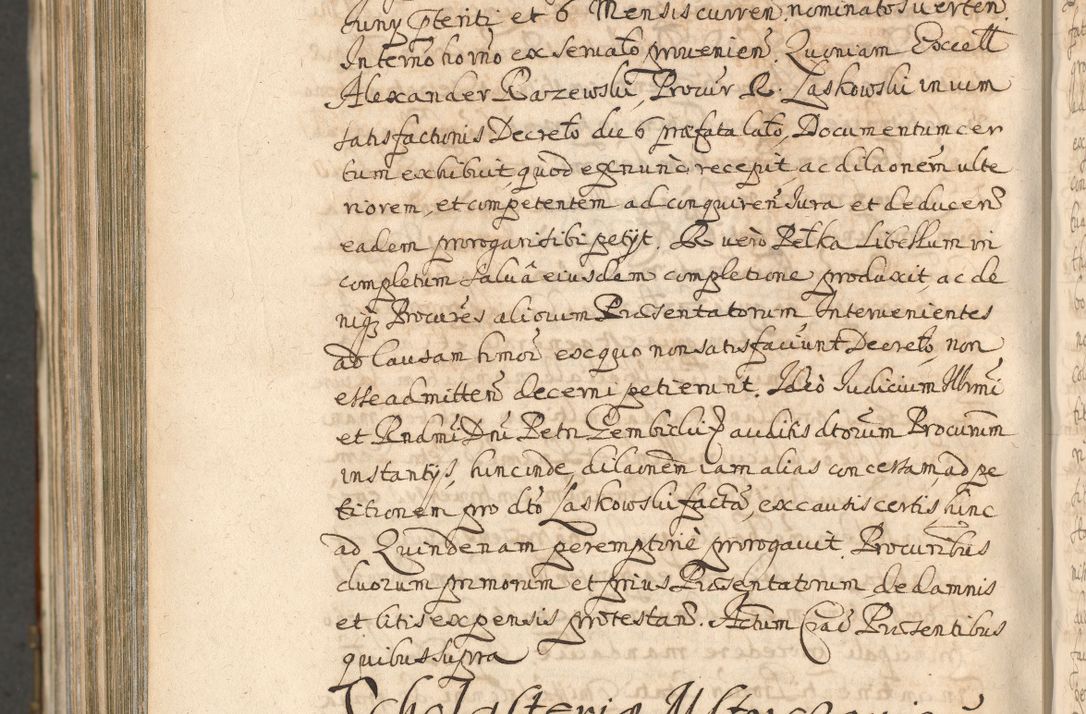 Juny pteriti et 6 Mensis curren nominatos verten
Interno horno ex servato provenien. Quoniam Excell
Alexander Parzewski, Procur R. Laskowski in vim
satisfactionis Decreto die 6 præfata lato, Documentum cer
tum exhibuit, quod ex nunc recepit ac dilaonem ulte
riorem, et competentem ad conquiren Jura et deducen
eadem prorogari sibi petijt. R. vero Pełka Libellum in
completum salva eiusdem completione produxit, ac de
niq Procures aliorum Præsentatorum Intervenientes
ad Causam hmoi ex quo non satisfaciunt Decreto, non
esse admitten decerni petierunt. Ideo Judicium Illrmi
et Rndmi Dni Petri Gembicki auditis dtorum Procurum
instantijs, hincinde, dilaonem iam alias concessam, ad pe
titionem pro dto Laskowski facta, ex causis certis hinc
ad Quindenam peremptorie prorogavit. Procuribus
duorum primorum et prius Præsentatorum de damnis
et litis expensis protestan. Actum Crac Præsentibus
quibus supra
Scholasteria